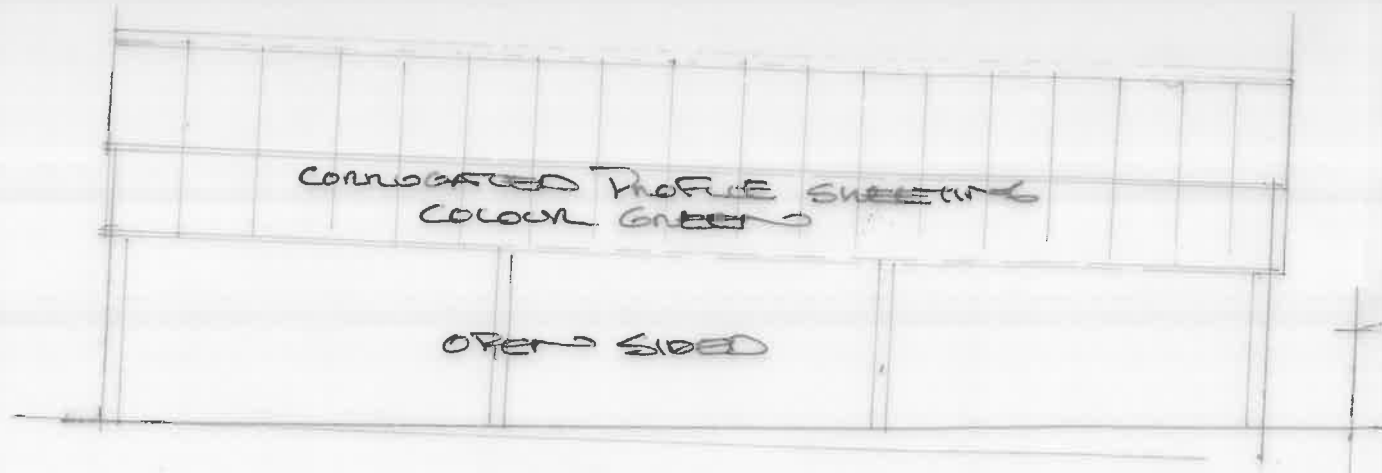 CORRUGATED PROFILE SHEETING
COLOUR GREEN
OPEN SIDED